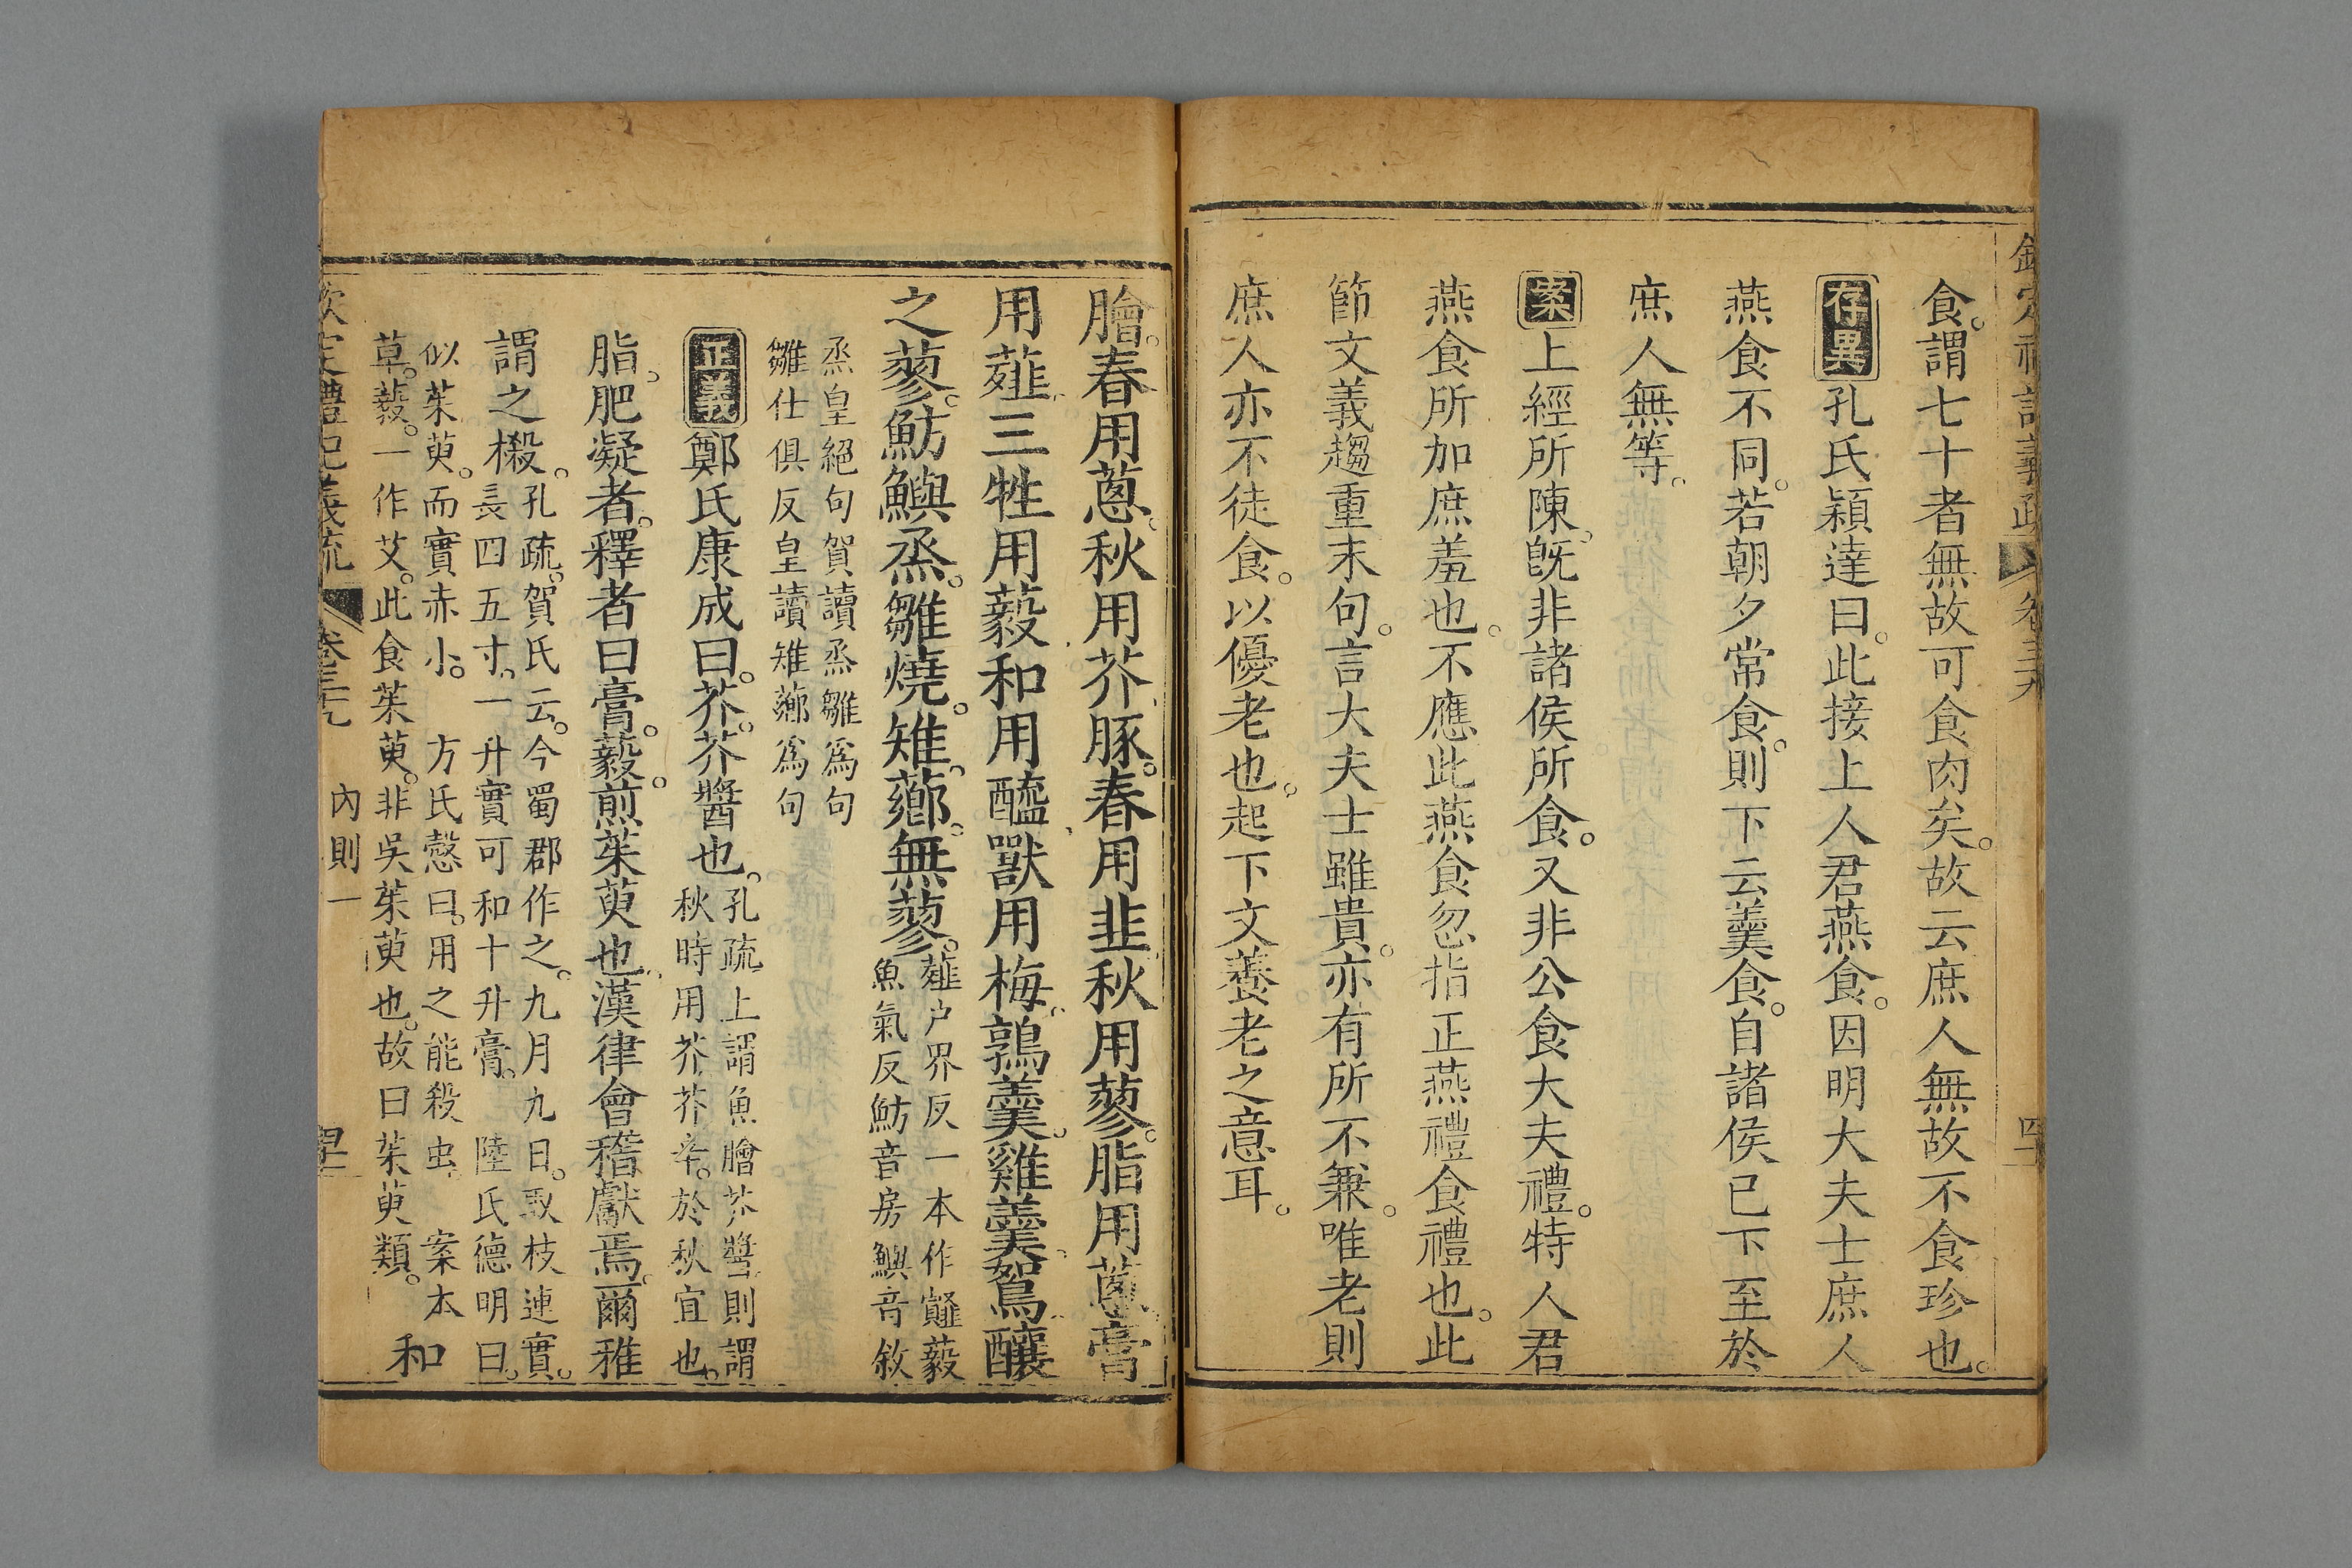 食。謂七十者無故可食肉矣。故云庶人無故不食珍也。
存異孔氏穎達曰。此接上人君燕食。因明大夫士庶人
燕食不同。若朝夕常食。則下云羹食。自諸侯已下至於
庶人無等。
案上經所陳。既非諸侯所食。又非公食大夫禮。特人君
燕食所加庶羞也。不應此燕食忽指正燕禮食禮也。此
節文義趨重末句。言大夫士雖貴。亦有所不兼。唯老則
庶人亦不徒食。以優老也。起下文養老之意耳。
膾。春用蔥。秋用芥。豚。春用韭。秋用蓼。脂用蔥。膏
用薤。三牲用藙。和用醯。獸用梅。鶉羹。雞羹。鴽。釀
之蓼。魴鱮烝。雛燒。雉。薌。無蓼。
薤户界反一本作䪥藙
魚氣反魴音房鱮音敘
烝皇絕句賀讀烝雛爲句
雛仕俱反皇讀雉薌爲句
正義鄭氏康成曰。芥。芥醬也。
孔疏上謂魚膾芥醬則謂
秋時用芥芥辛。於秋宜也。
脂。肥凝者。釋者曰膏。藙。煎茱萸也。漢律會稽獻焉。爾雅
謂之樧。
孔疏。賀氏云。今蜀郡作之。九月九日。取枝連實。
長四五寸。一升實可和十升膏。 陸氏德明曰。
似茱萸。而實赤小。 方氏慤曰。用之能殺虫。 案本
草。藙。一作艾。此食茱萸。非吳茱萸也。故曰茱萸類。
和
内則一